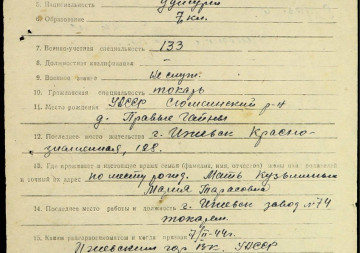 5. Национальность удмурт
6. Образование 7 кл.
7. Военно-учетная специальность 133
8. Должностная квалификация –
9. Воинское звание не служ.
10. Гражданская специальность токарь
11. Место рождения УАССР Сюмсинский р-н
д. Правые Гайны
12. Последнее место жительства г. Ижевск Красно-
знаменная, 128.
13. Где проживает в настоящее время семья (фамилия, имя, отчество) жены или родителей
и точный их адрес по месту рожд. Мать Кузьминых
Мария Тарасовна
14. Последнее место работы и должность г. Ижевск завод № 74
токарем.
15. Каким райвоенкоматом и когда призван 7/II-44 г.
Ижевским гор. ВК. УАССР